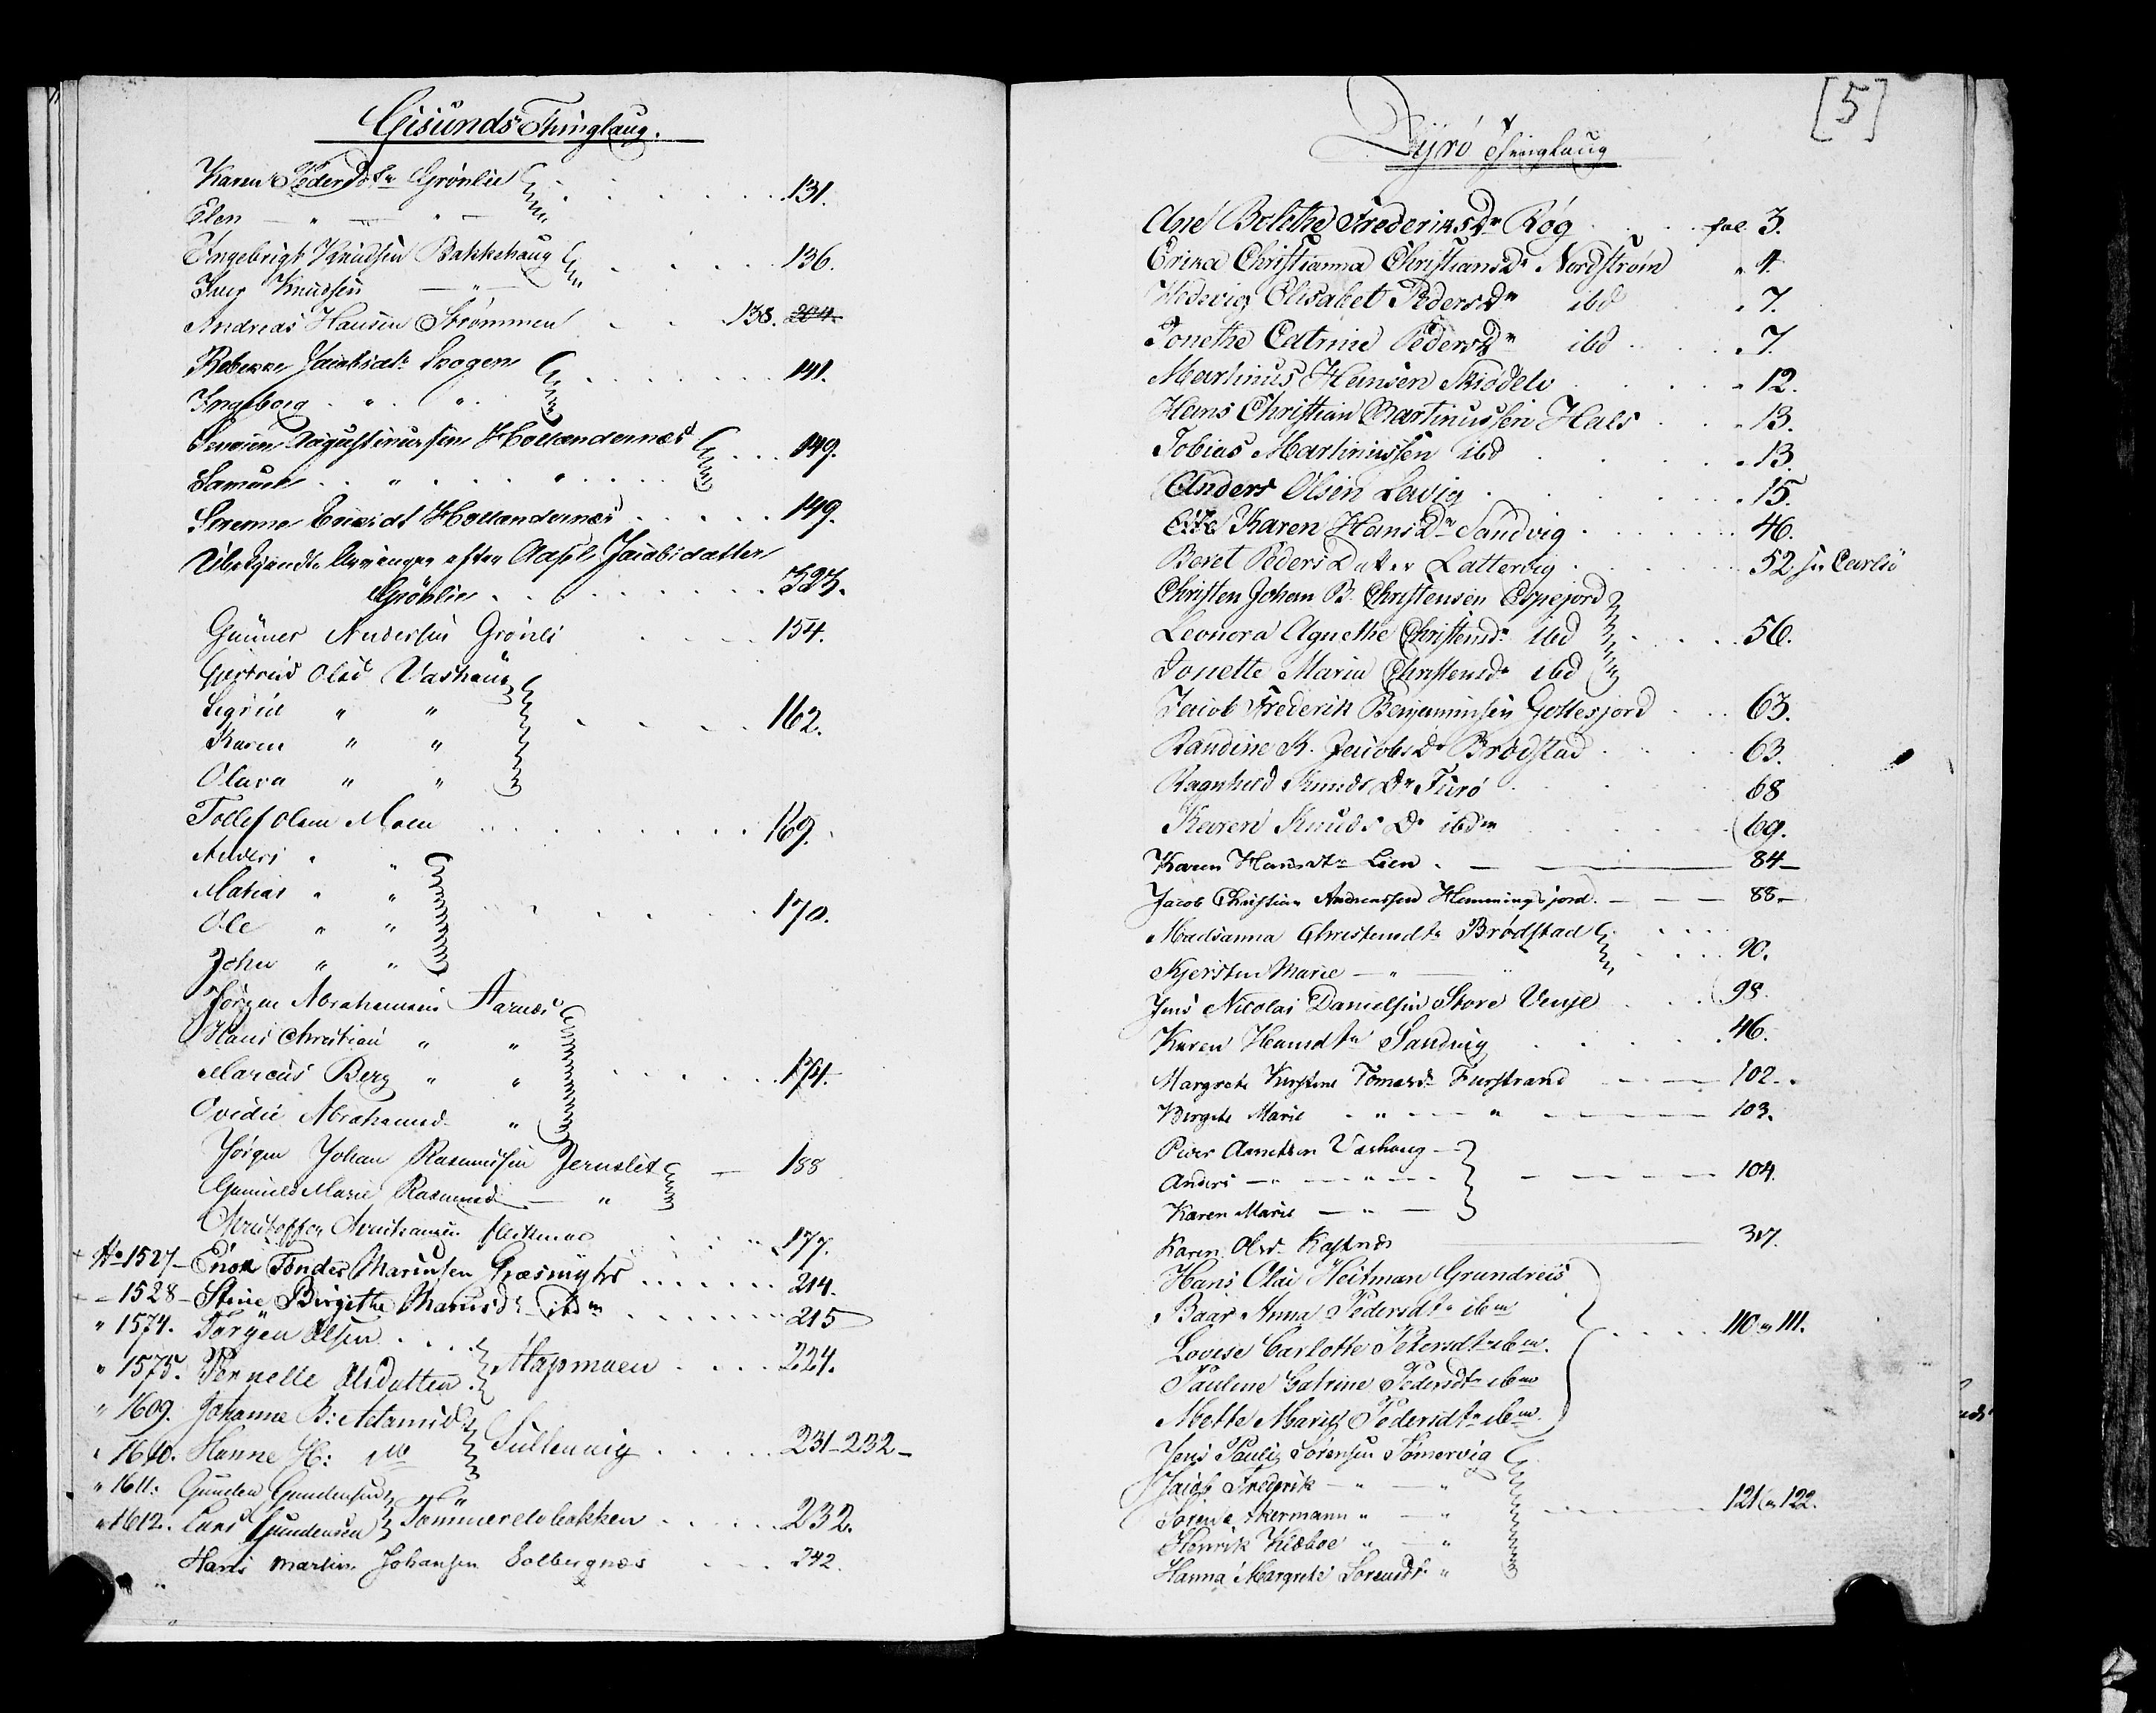 Gisunds Thinglaug.
Karen Pedersdtr Grönlie . . . 131.
Elen — " — " —
Ingebrigt Knudsen Bakkehaug . . . 136.
Iver Knudsen — " —
Andreas Hansen Strømmen . . . 138. 204.
Rebekka Jacobsdtr Skogen . . . 141.
Ingeborg . " . " .
Augustinussen Hollændernæs . . . 149.
Samuel . . " . . . " . . .
Hollændernæs . . . 149.
Ubekjendte Arvinger efter Jacobsdatter
Grönlie . . . 323.
Gunner Andersen Grönli . . . 154.
Gjertrud Olsd Vashaug
Sigrid " " . . . 162.
Karen " "
Olava " "
Tollef Olsen Moen . . . 169.
Anders " "
Matias " "
Ole " " . . . 170.
Johan " "
Jörgen Abrahamsen Aarnæs
Hans Christian " "
Marcus Berg " " . . . 174.
Ovidie Abrahamsd "
Jörgen Johan Rasmussen Jernslet — 188
Gunnild Marie Rasmusd — "
Christoffer . . . 177.
No 1527 — Enok Tønder Mariusen Græsmyhr . . . 214.
" 1528 — Stine Birgithe Mariusd ibdm . . . 215
" 1574. Jörgen Olsen . . .
" 1575. Pernelle Olsdatter. Stapmoen . . . 224.
" 1609. Johanne B: Adamsd
" 1610. Hanne H: Gullewiig . . . 231-232 —
" 1611. Gunder Gundersen "
" 1612. Lars Gundersen Tömmerelvbakken . . . 232.
" Hans Martin Johansen Solbergnæs . . . 242.
[5]
Dyrö Thinglaug
Ane Bolethe FrederiksDr Røg . . . fol 3.
Erika Christianna ChristiansDr Nordstrøm " 4.
Hedevig Elisabet PedersDr ibd " 7.
Jonethe Catrine PedersDr ibd . . . " 7.
Martinus Hansen Skiödelv . . . " 12.
Hans Christian Martinussen Hals . . . " 13.
Tobias Martinussen ibd . . . " 13.
Anders Olsen Levig . . . " 15.
Karen HansDr Sandvig . . . 46.
Beret PedersDatter Lattervig . . . 52 Carlsö
Christen Johan B. Christensen Espejord
Leonora Agnethe Christensdr ibd . . . 56.
Jonette Maria Christensdr ibd
Jacob Frederik Benjaminsen Gottesjord . . . 63.
Randine K. JacobsDr Brødstad . . . 63.
Ragnhild KnudsDr Furö . . . 68
Karen KnudsDr ibdm . . . 69.
Karen Hansdtr Lien . — — 84 —
Jacob Christian Andreassen Hemmingsjord. — — 88 —
Madsanna Christensdtr Brødstad . . . 90.
Kjersten Marie — " — "
Jens Nicolai Danielsen Store Vinje . . . 98.
Karen Hansdtr Sandvig . . . 46.
Margrete Kirstine Tomasdr Furstrand — — 102 —
Birgite Marie - " - - " — — 103.
Peder Arntsen Vashaug —
Anders — " — — " — — — — 104.
Karen Marie — " —
Karen Olsd. Kastnes — 317.
Hans Olai Heitman Grundreis
Baar Anna Pedersdtr ibm
Lovise Carlotte Petersdtr ibm. . . . 110 " 111.
Pauline Catrine Pedersdtr ibm
Mette Marie Pedersdtr ibm
Jens Pauli Sörensen Sömervig
Jacob Frederik — " — "
Sören Akermann " — " . . . 121 " 122.
Henrik Kiæboe " — "
Hanna Margrete Sörensdr "